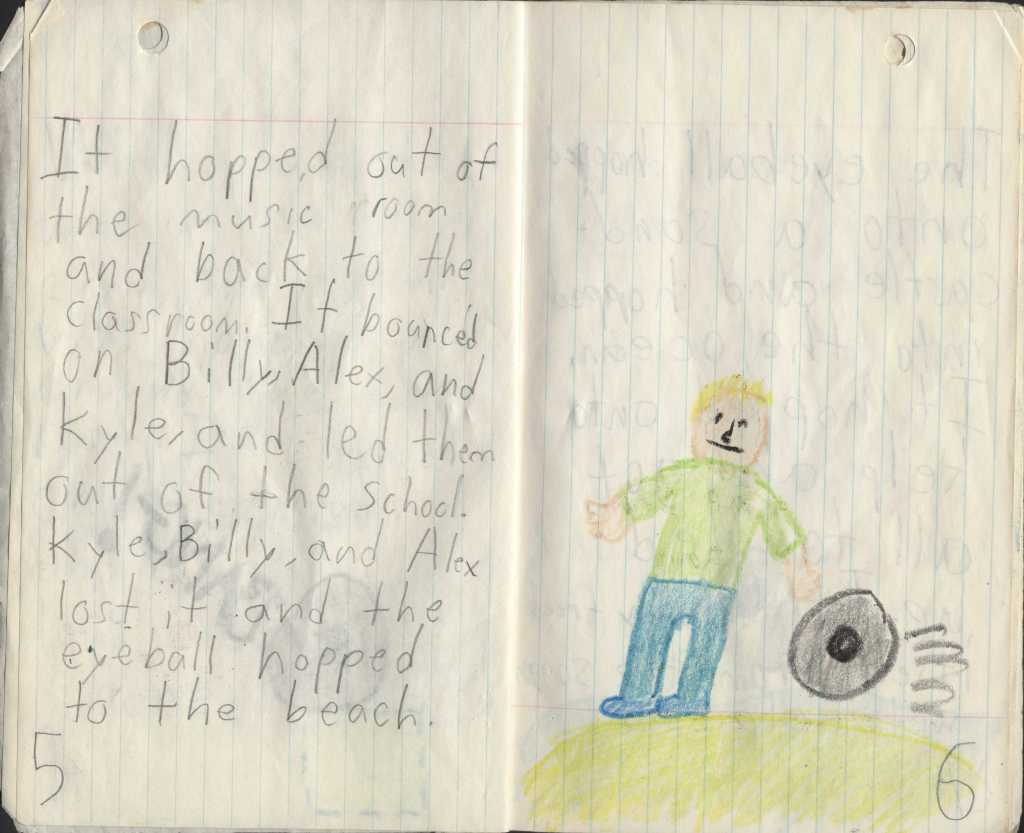 It hopped out of
the music room
and back to the
classroom. It bounced
on Billy, Alex, and
Kyle, and led them
out of the school.
Kyle, Billy, and Alex
lost it and the
eyeball hopped
to the beach.
5
6